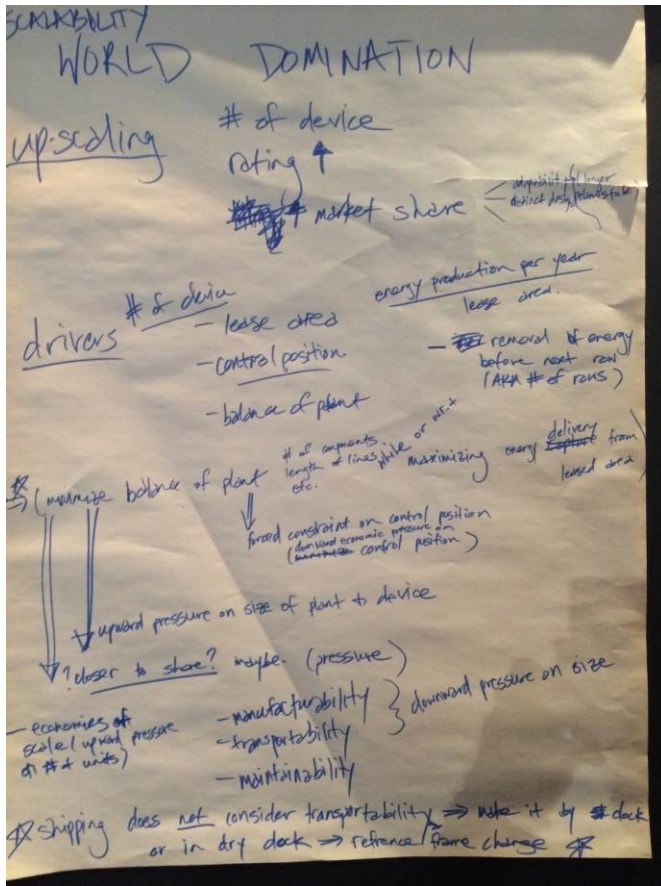 SCALABILITY
WORLD DOMINATION
up-scaling
# of device
rating ↑
↑ market share
drivers
# of device
- lease area
- control position.
- balance of plant
energy production per year
lease area.
- removal of energy
before next row
(AKA # of rows)
(minimize balance of plant
# of components
length of lines
etc.
while or w.r.t
maximizing energy delivery from
leased area)
forced constraint on control position
(downward economic pressure on
control position)
upward pressure on size of plant to device
? closer to shore? maybe. (pressure)
- economies of
scale (upward pressure
on # of units)
- manufacturability
- transportability
- maintainability
downward pressure on size
☆ shipping does not consider transportability ⇒ make it by dock
or in dry dock ⇒ refrence/frame change ☆